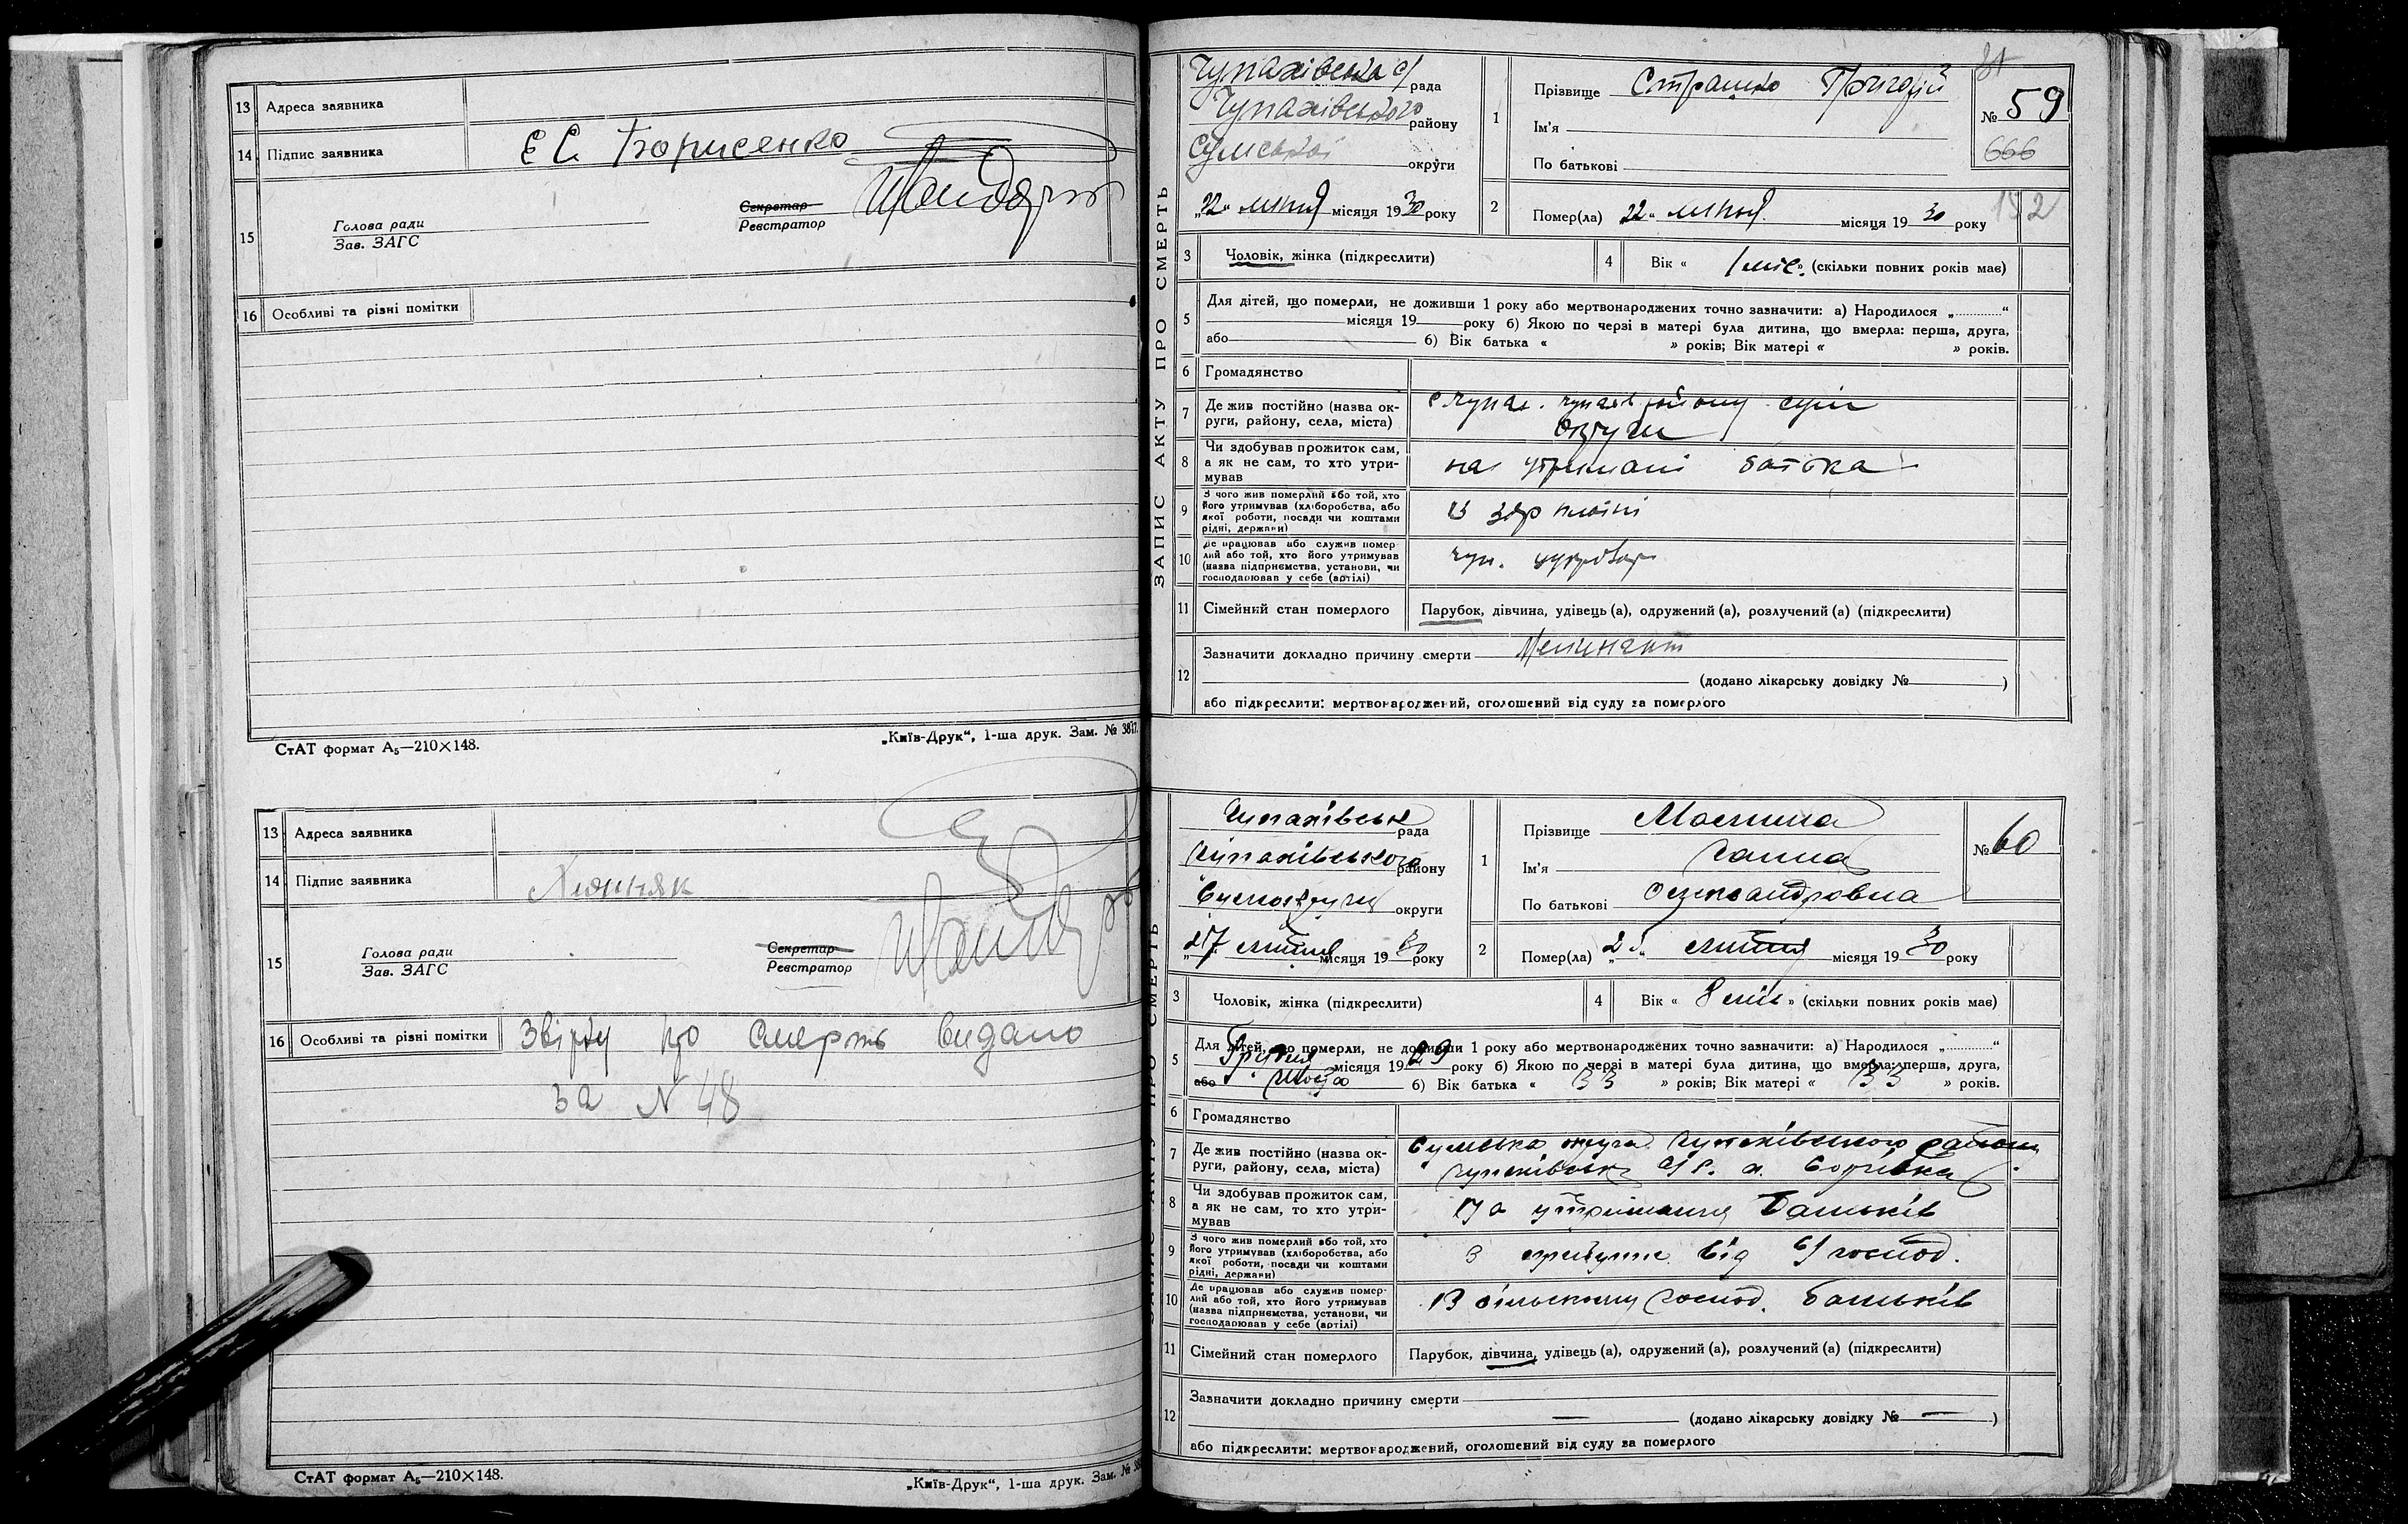 13 Адреса заявника
14 Підпис заявника Є С Борисенко
15 Голова ради
Зав. ЗАГС
Секретар
Реєстратор
16 Особливі та різні помітки
СтАТ формат А5—210×148.
„Київ-Друк“, 1-ша друк. Зам. № 3817.
13 Адреса заявника
14 Підпис заявника
15 Голова ради
Зав. ЗАГС
Секретар
Реєстратор
16 Особливі та різні помітки
про смерть видано
за N 48
СтАТ формат А5—210×148.
„Київ-Друк“, 1-ша друк. Зам. № 38
ЗАПИС АКТУ ПРО СМЕРТЬ
Чупахівська с/ рада
Чупахівського району
Сумської округи
„22“ липня місяця 1930 року
1 Прізвище Страшко Григорій
Ім'я
По батькові
31
№ 59
666
152
2 Помер(ла) 22“ липня місяця 19 30 року
3 Чоловік, жінка (підкреслити)
4 Вік « 1 міс.» (скільки повних років має)
5 Для дітей, що померли, не доживши 1 року або мертвонароджених точно зазначити: а) Народилося „............“
місяця 19 року б) Якою по черзі в матері була дитина, що вмерла: перша, друга,
або б) Вік батька « » років; Вік матері « » років.
6 Громадянство
7 Де жив постійно (назва округи, району, села, міста) с Чупах. Чупахів району Сум
округи
8 Чи здобував прожиток сам,
а як не сам, то хто утримував на утримані батька
9 З чого жив померлий або той, хто
його утримував (хліборобства, або
якої роботи, посади чи коштами
рідні, держави) із зар платні
10 Де працював або служив померлий або той, хто його утримував
(назва підприємства, установи, чи
господарював у себе (артілі) чуп.
11 Сімейний стан померлого Парубок, дівчина, удівець (а), одружений (а), розлучений (а) (підкреслити)
12 Зазначити докладно причину смерти
(додано лікарську довідку № )
або підкреслити: мертвонароджений, оголошений від суду за померлого
ЗАПИС АКТУ ПРО СМЕРТЬ
Чупахівськ рада
Чупахівського району
округи
„27“ липня місяця 19 30 року
1 Прізвище
Ім'я Ганна
По батькові Олександровна
№ 60
2 Помер(ла) липня місяця 19 30 року
3 Чоловік, жінка (підкреслити)
4 Вік « 8 міс » (скільки повних років має)
5 Для дітей, що померли, не доживши 1 року або мертвонароджених точно зазначити: а) Народилося „............“
Грудня місяця 19 29 року б) Якою по черзі в матері була дитина, що вмерла: перша, друга,
або шоста б) Вік батька « 33 » років; Вік матері « 33 » років.
6 Громадянство
7 Де жив постійно (назва округи, району, села, міста) Сумська округа Чупахівського району
Чупахівськ с/р. х.
8 Чи здобував прожиток сам,
а як не сам, то хто утримував На утриманню Батьків
9 З чого жив померлий або той, хто
його утримував (хліборобства, або
якої роботи, посади чи коштами
рідні, держави) З прибутків від с/господ.
10 Де працював або служив померлий або той, хто його утримував
(назва підприємства, установи, чи
господарював у себе (артілі) В сільському господ. батьків
11 Сімейний стан померлого Парубок, дівчина, удівець (а), одружений (а), розлучений (а) (підкреслити)
12 Зазначити докладно причину смерти
— (додано лікарську довідку № — )
або підкреслити: мертвонароджений, оголошений від суду за померлого